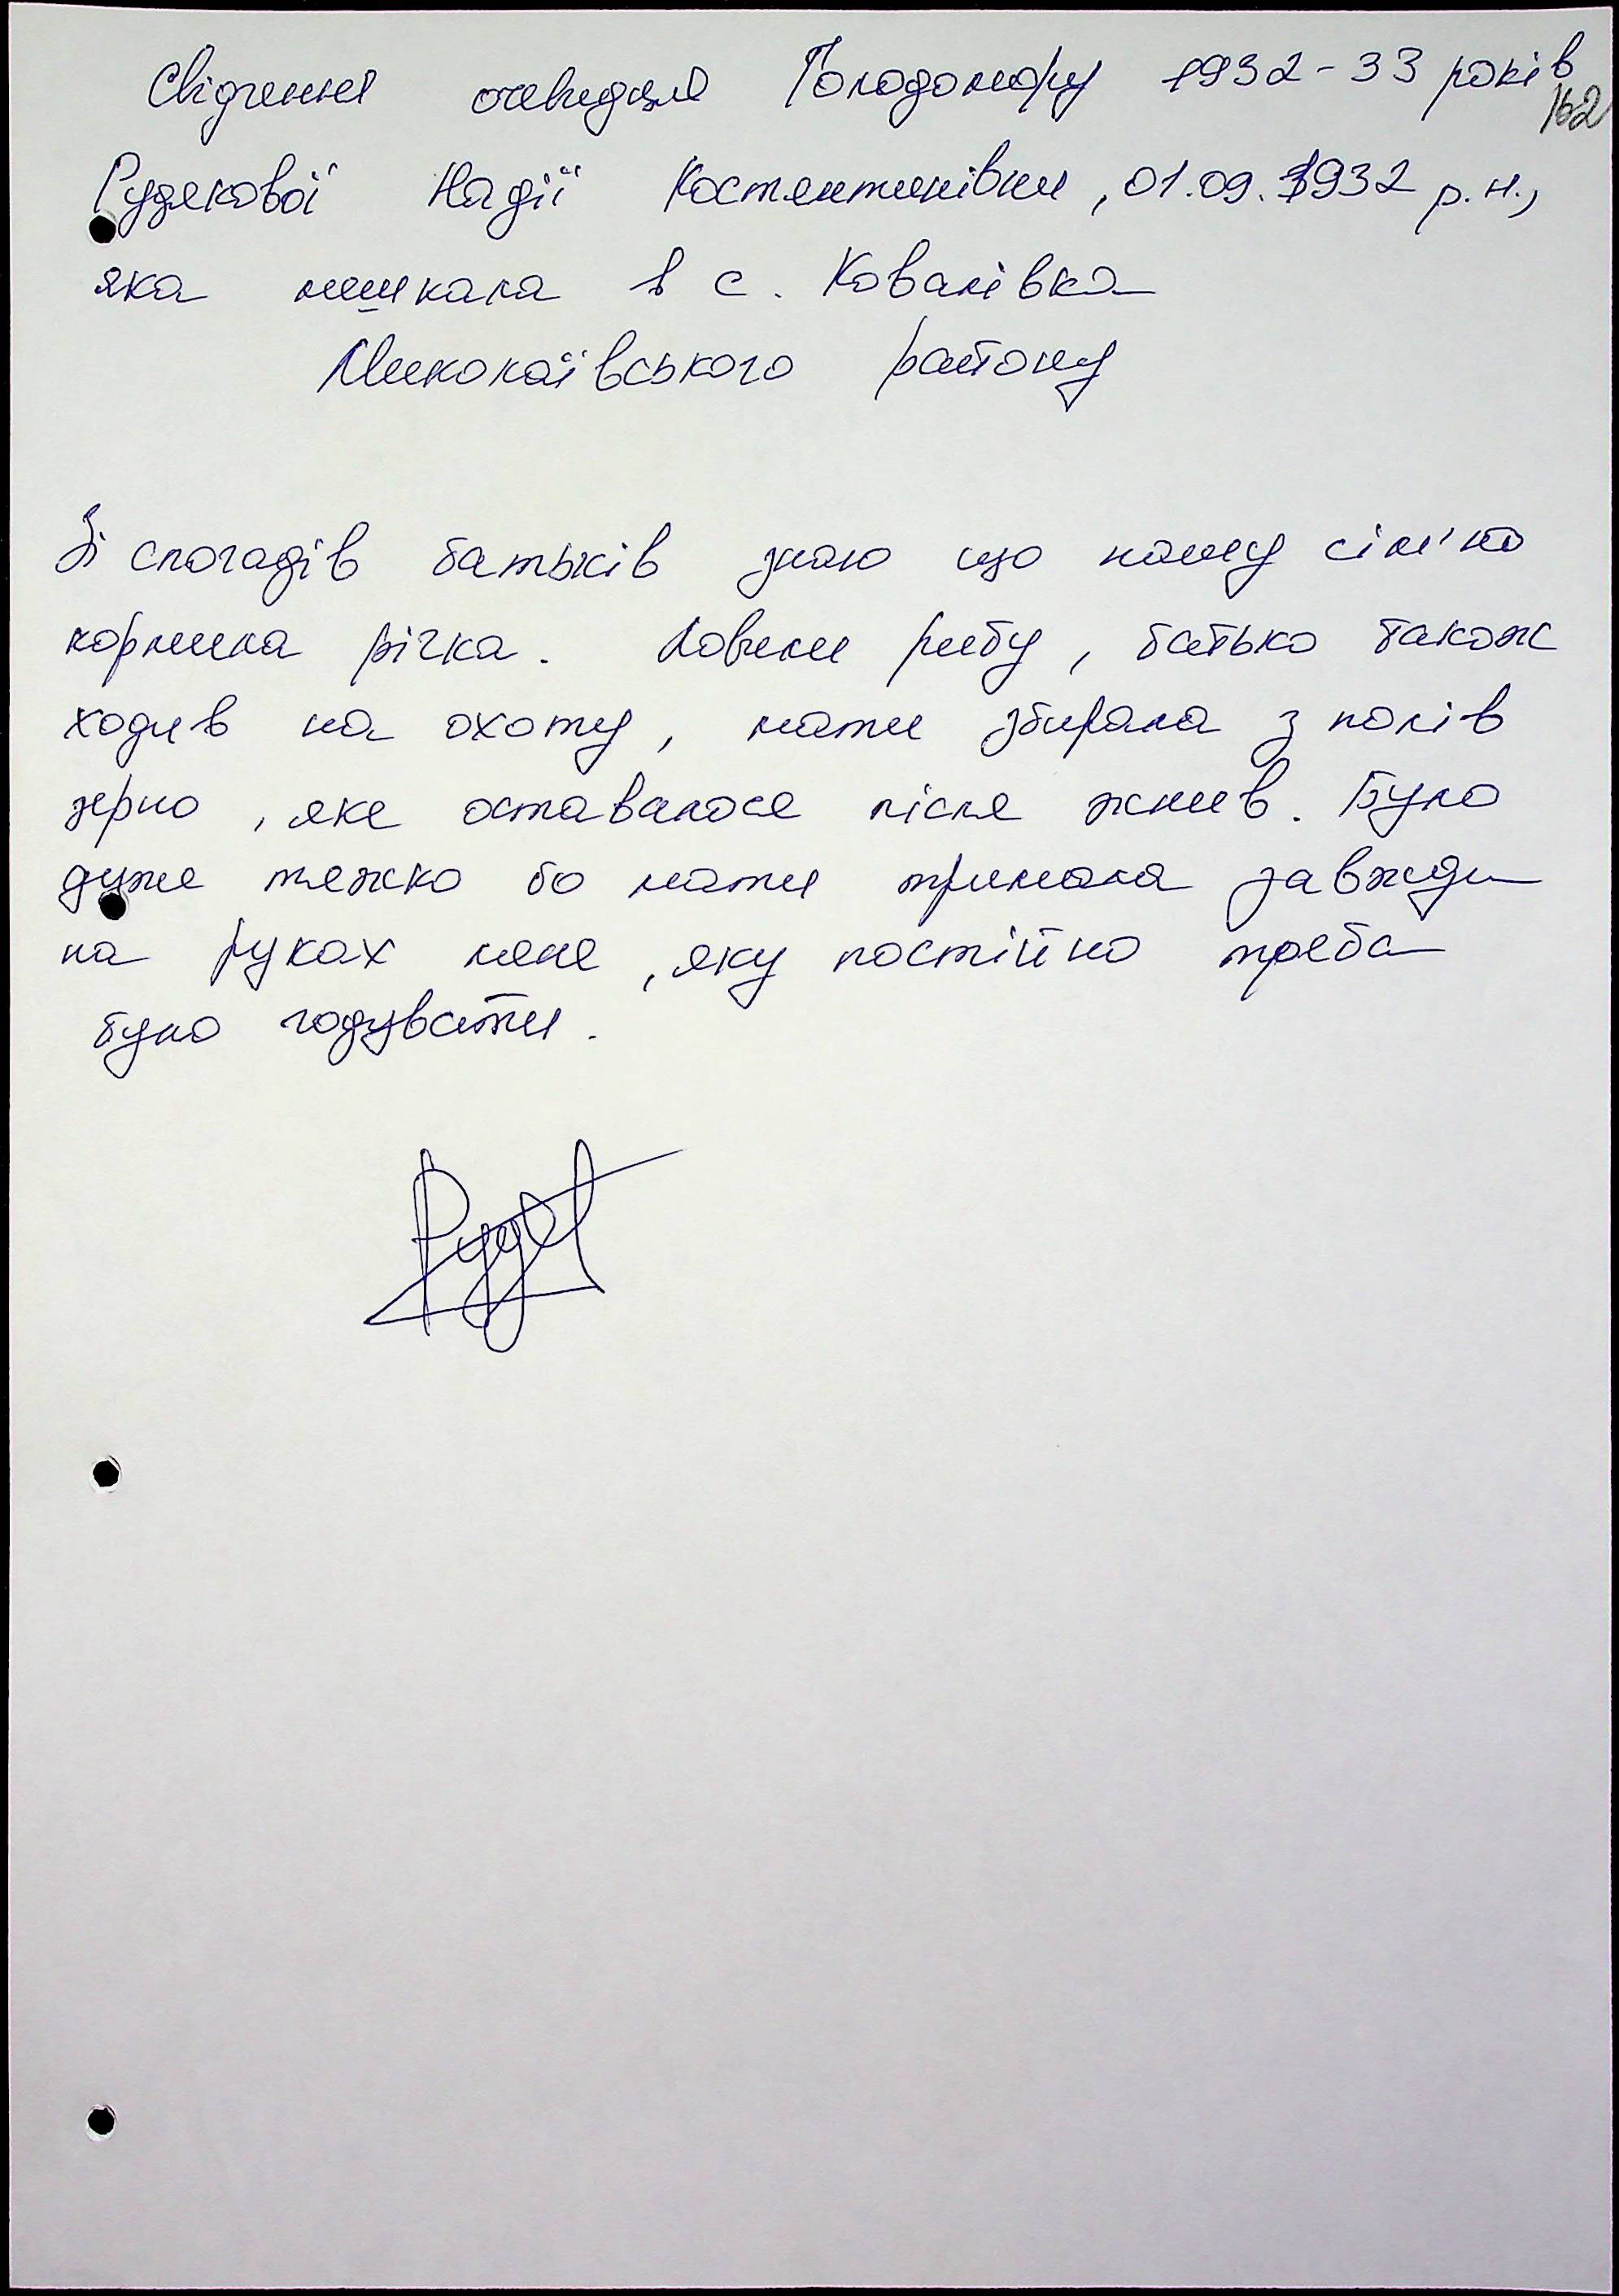 Свідчення очевидця Голодомору 1932-33 років
162
Рудякової Надії Костянтинівни, 01.09.1932 р.н.,
яка мешкала в с. Ковалівка
Миколаївського району
Зі спогадів батьків знаю що нашу сім'ю
кормила річка. Ловили рибу, батько також
ходив на охоту, мати збирала з полів
зерно, яке оставалося після жнив. Було
дуже тяжко бо мати тримала завжди
на руках мене, яку постійно треба
було годувати.